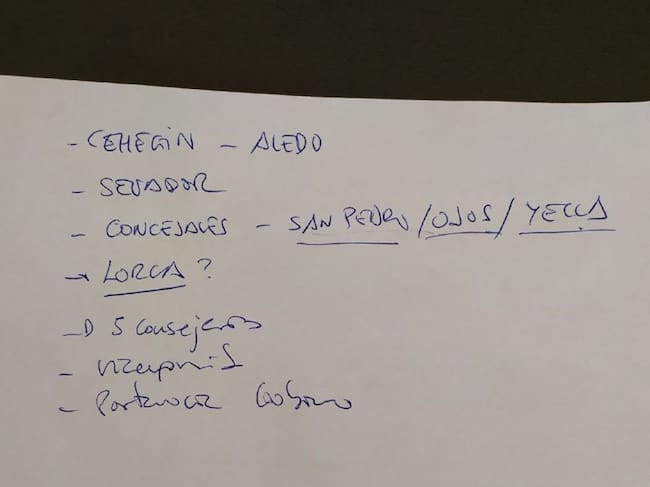 - CEHEGIN - ALEDO
- SENADOR
- CONCEJALES - SAN PEDRO / OJOS / YECLA
→ LORCA ?
→ 5 consejeros
- Vicepresid
- Portavoz Gobierno